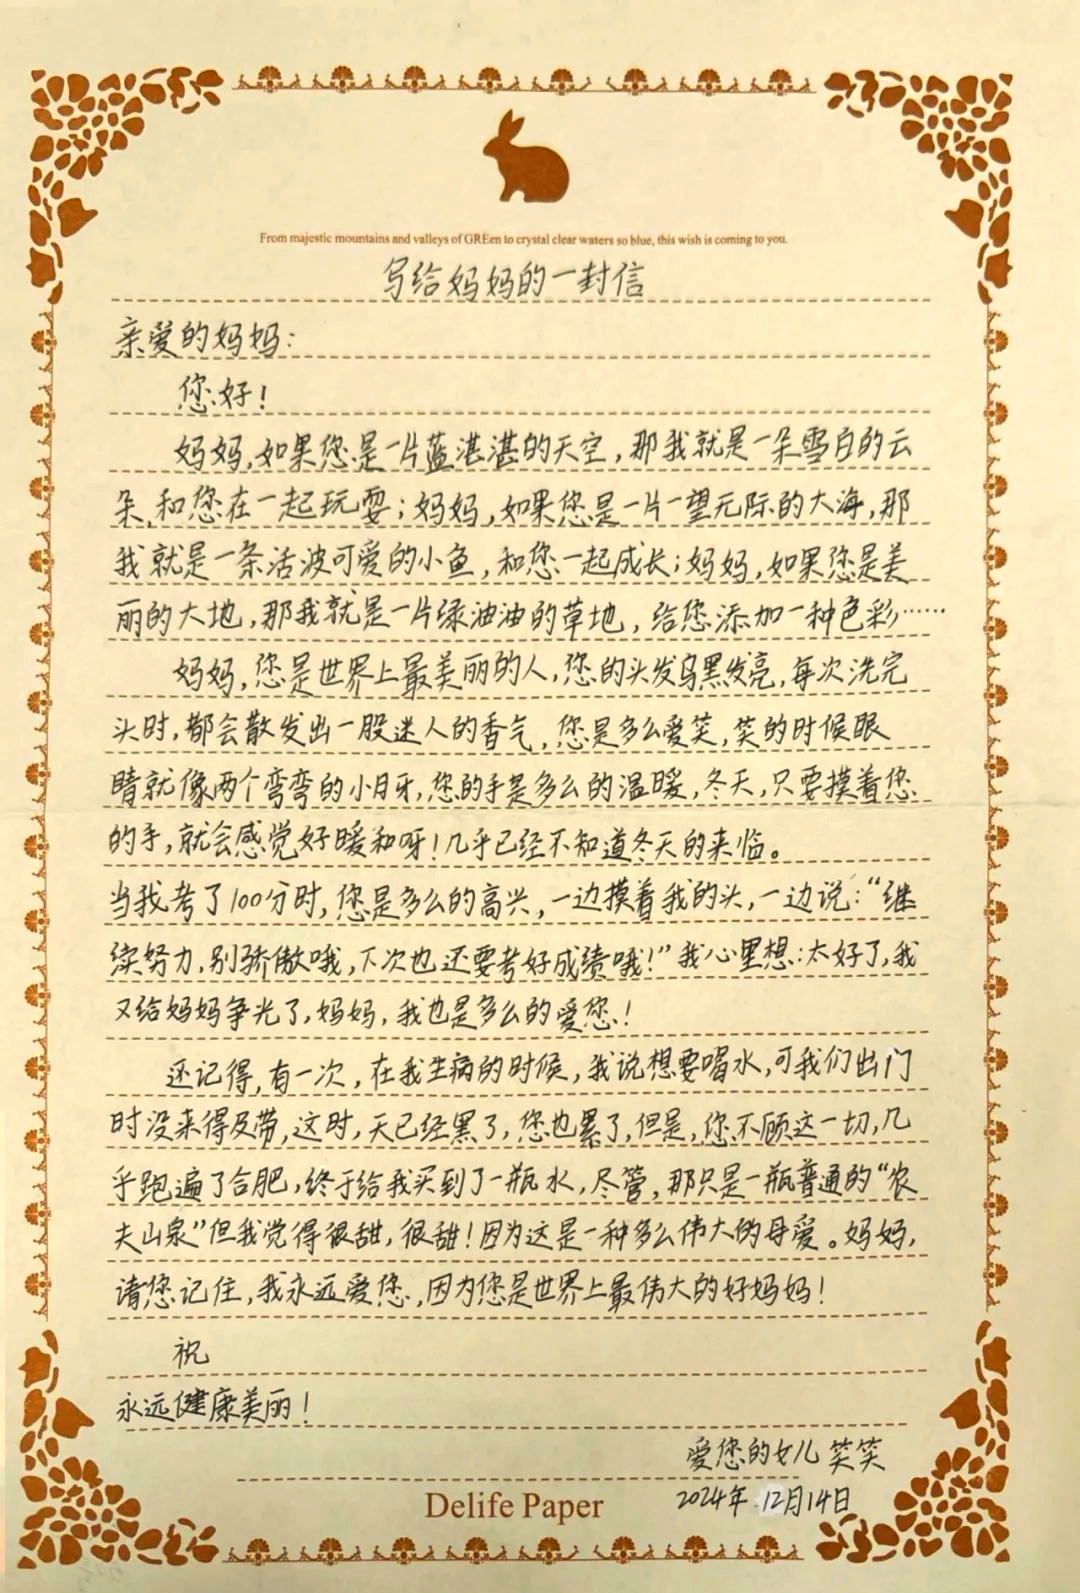 From majestic mountains and valleys of GREen to crystal clear waters so blue, this wish is coming to you.
写给妈妈的一封信
亲爱的妈妈:
您好!
妈妈,如果您是一片蓝湛湛的天空,那我就是一朵雪白的云
朵,和您在一起玩耍;妈妈,如果您是一片一望无际的大海,那
我就是一条活波可爱的小鱼,和您一起成长;妈妈,如果您是美
丽的大地,那我就是一片绿油油的草地,给您添加一种色彩……
妈妈,您是世界上最美丽的人,您的头发乌黑发亮,每次洗完
头时,都会散发出一股迷人的香气,您是多么爱笑,笑的时候眼
睛就像两个弯弯的小月牙,您的手是多么的温暖,冬天,只要摸着您
的手,就会感觉好暖和呀!几乎已经不知道冬天的来临。
当我考了100分时,您是多么的高兴,一边摸着我的头,一边说:“继
续努力,别骄傲哦,下次也还要考好成绩哦!”我心里想:太好了,我
又给妈妈争光了,妈妈,我也是多么的爱您!
还记得,有一次,在我生病的时候,我说想要喝水,可我们出门
时没来得及带,这时,天已经黑了,您也累了,但是,您不顾这一切,几
乎跑遍了合肥,终于给我买到了一瓶水,尽管,那只是一瓶普通的“农
夫山泉”但我觉得很甜,很甜!因为这是一种多么伟大的母爱。妈妈,
请您记住,我永远爱您,因为您是世界上最伟大的好妈妈!
祝
永远健康美丽!
爱您的女儿 笑笑
2024年 12月14日
Delife Paper